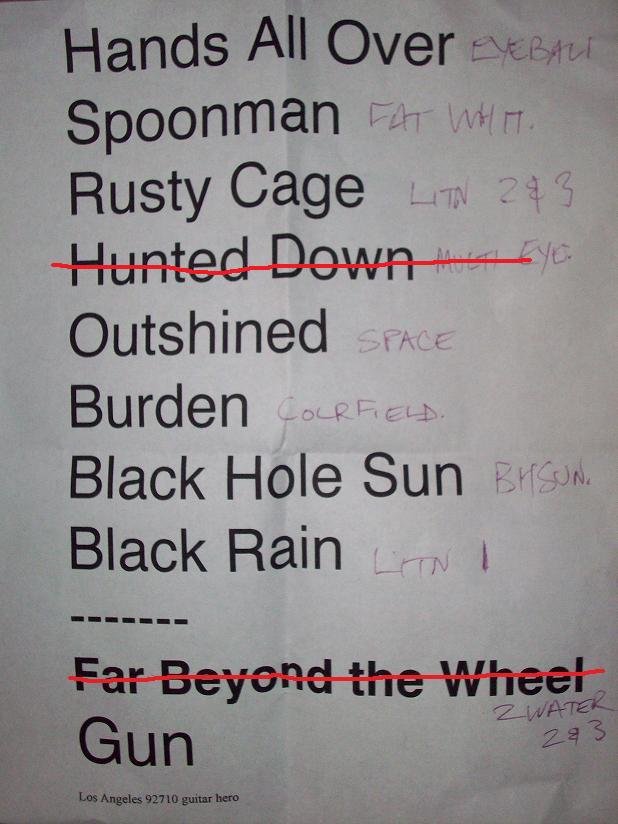 Hands All Over EYEBALL
Spoonman FAT WHIT.
Rusty Cage LITN 2 & 3
Hunted Down MULTI EYE.
Outshined SPACE
Burden COLRFIELD.
Black Hole Sun BHSUN.
Black Rain LITN 1
-------
Far Beyond the Wheel
2 WATER
Gun 2 & 3
Los Angeles 92710 guitar hero